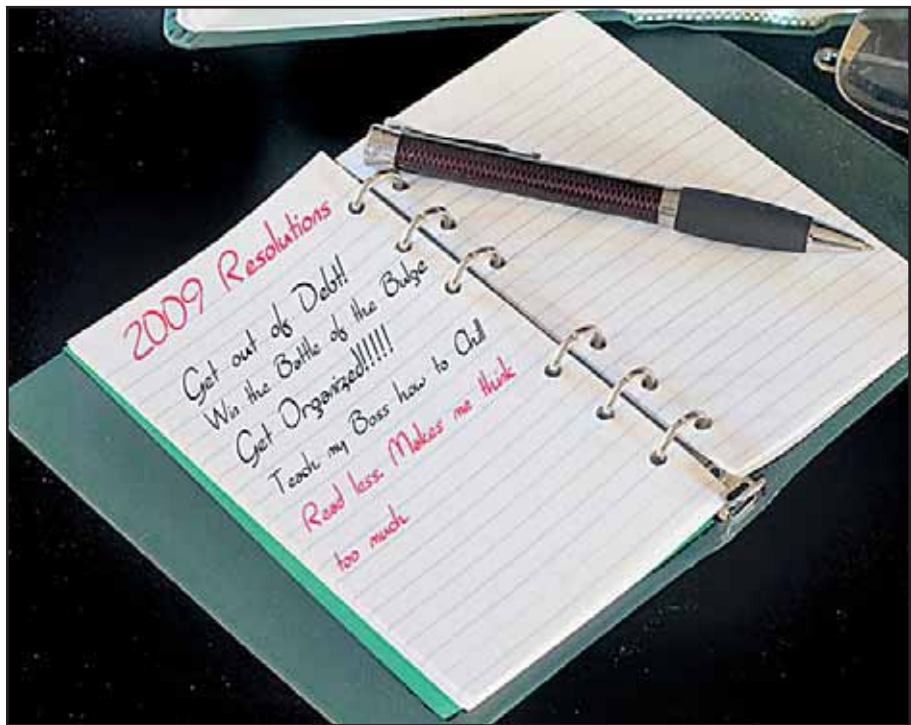 2009 Resolutions
Get out of Debt!
Win the Battle of the Bulge
Get Organized!!!!!
Teach my Boss how to Chill
Read less. Makes me think
too much